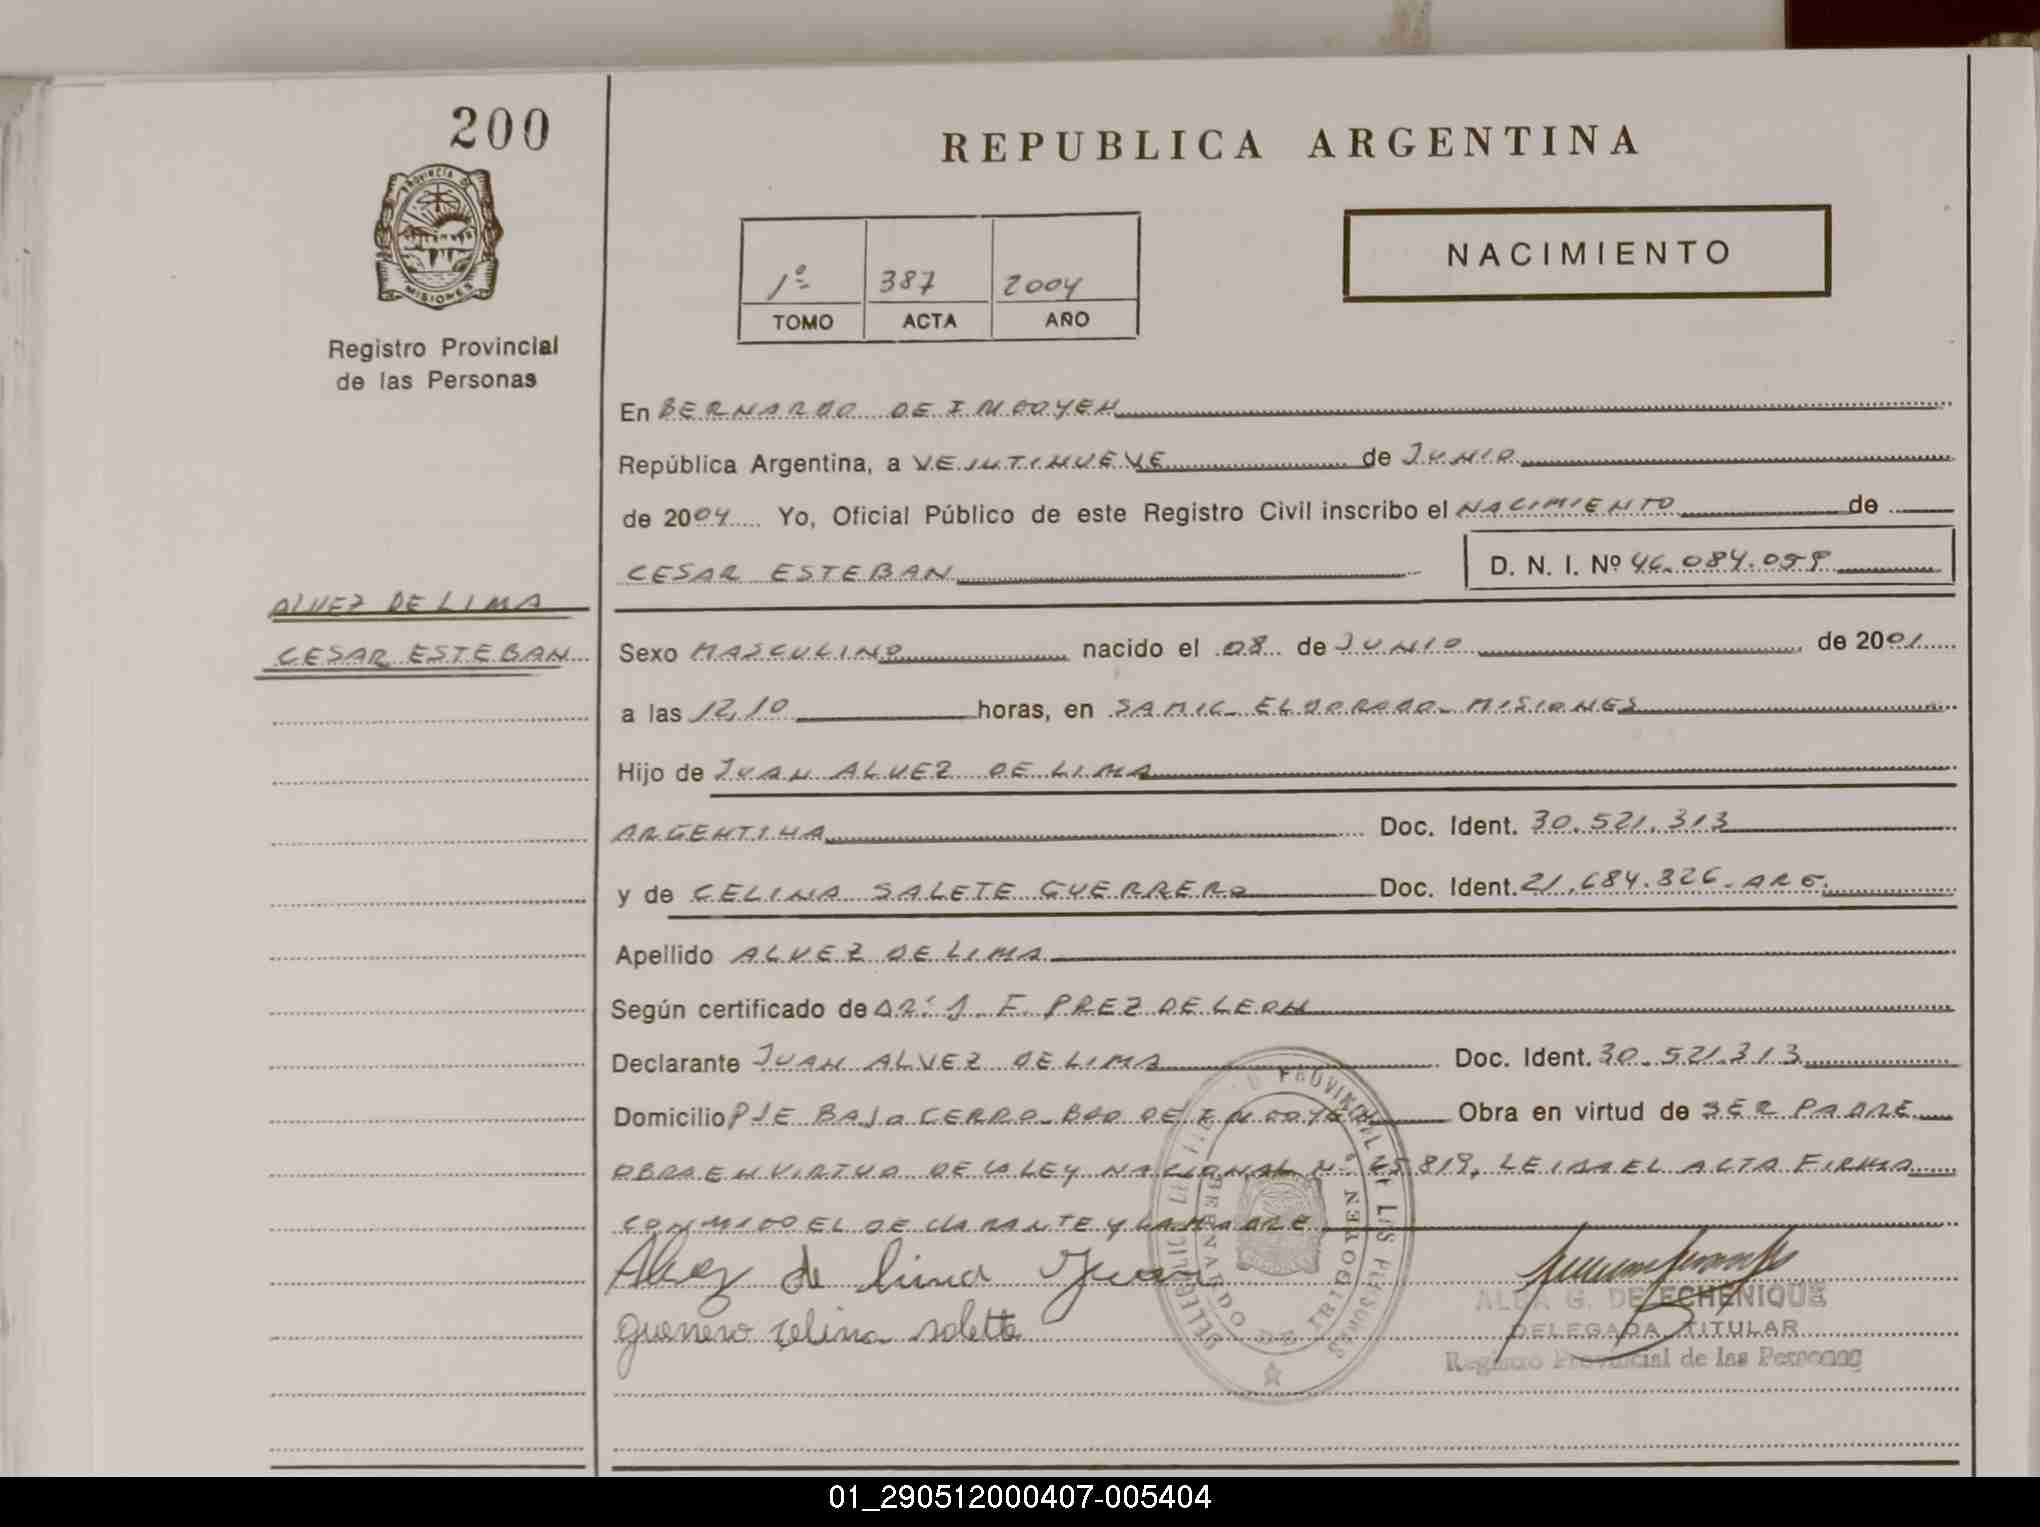 200
PROVINCIA DE
MISIONES
Registro Provincial
de las Personas
REPUBLICA ARGENTINA
NACIMIENTO
1º 387 2004
TOMO ACTA AÑO
En BERNARDO DE IRIGOYEN
República Argentina, a VEINTINUEVE de JUNIO
de 2004 Yo, Oficial Público de este Registro Civil inscribo el NACIMIENTO de
CESAR ESTEBAN D. N. I. Nº 46.084.059
ALVEZ DE LIMA
CESAR ESTEBAN
Sexo MASCULINO nacido el 08 de JUNIO de 2001
a las 12,10 horas, en SAMIC ELDORADO - MISIONES
Hijo de JUAN ALVEZ DE LIMA
ARGENTINA Doc. Ident. 30.521.313
y de CELINA SALETE GUERRERO Doc. Ident. 21.684.826 - ARG.
Apellido ALVEZ DE LIMA
Según certificado de DR: J. F. PREZ DE LEON
Declarante JUAN ALVEZ DE LIMA Doc. Ident. 30.521.313
Domicilio PJE BAJO CERRO - BDO DE IRIGOYEN Obra en virtud de SER PADRE
OBRA EN VIRTUD DE LA LEY NACIONAL Nº 25819, LEIDA EL ACTA FIRMA
CONMIGO EL DECLARANTE Y LA MADRE
Alvez de lima Juan
guerrero celina salette
DELEGACION PROVINCIAL DE LAS PERSONAS
BERNARDO DE IRIGOYEN
ALBA G. DE ECHENIQUE
DELEGADA TITULAR
Registro Provincial de las Personas
01_290512000407-005404